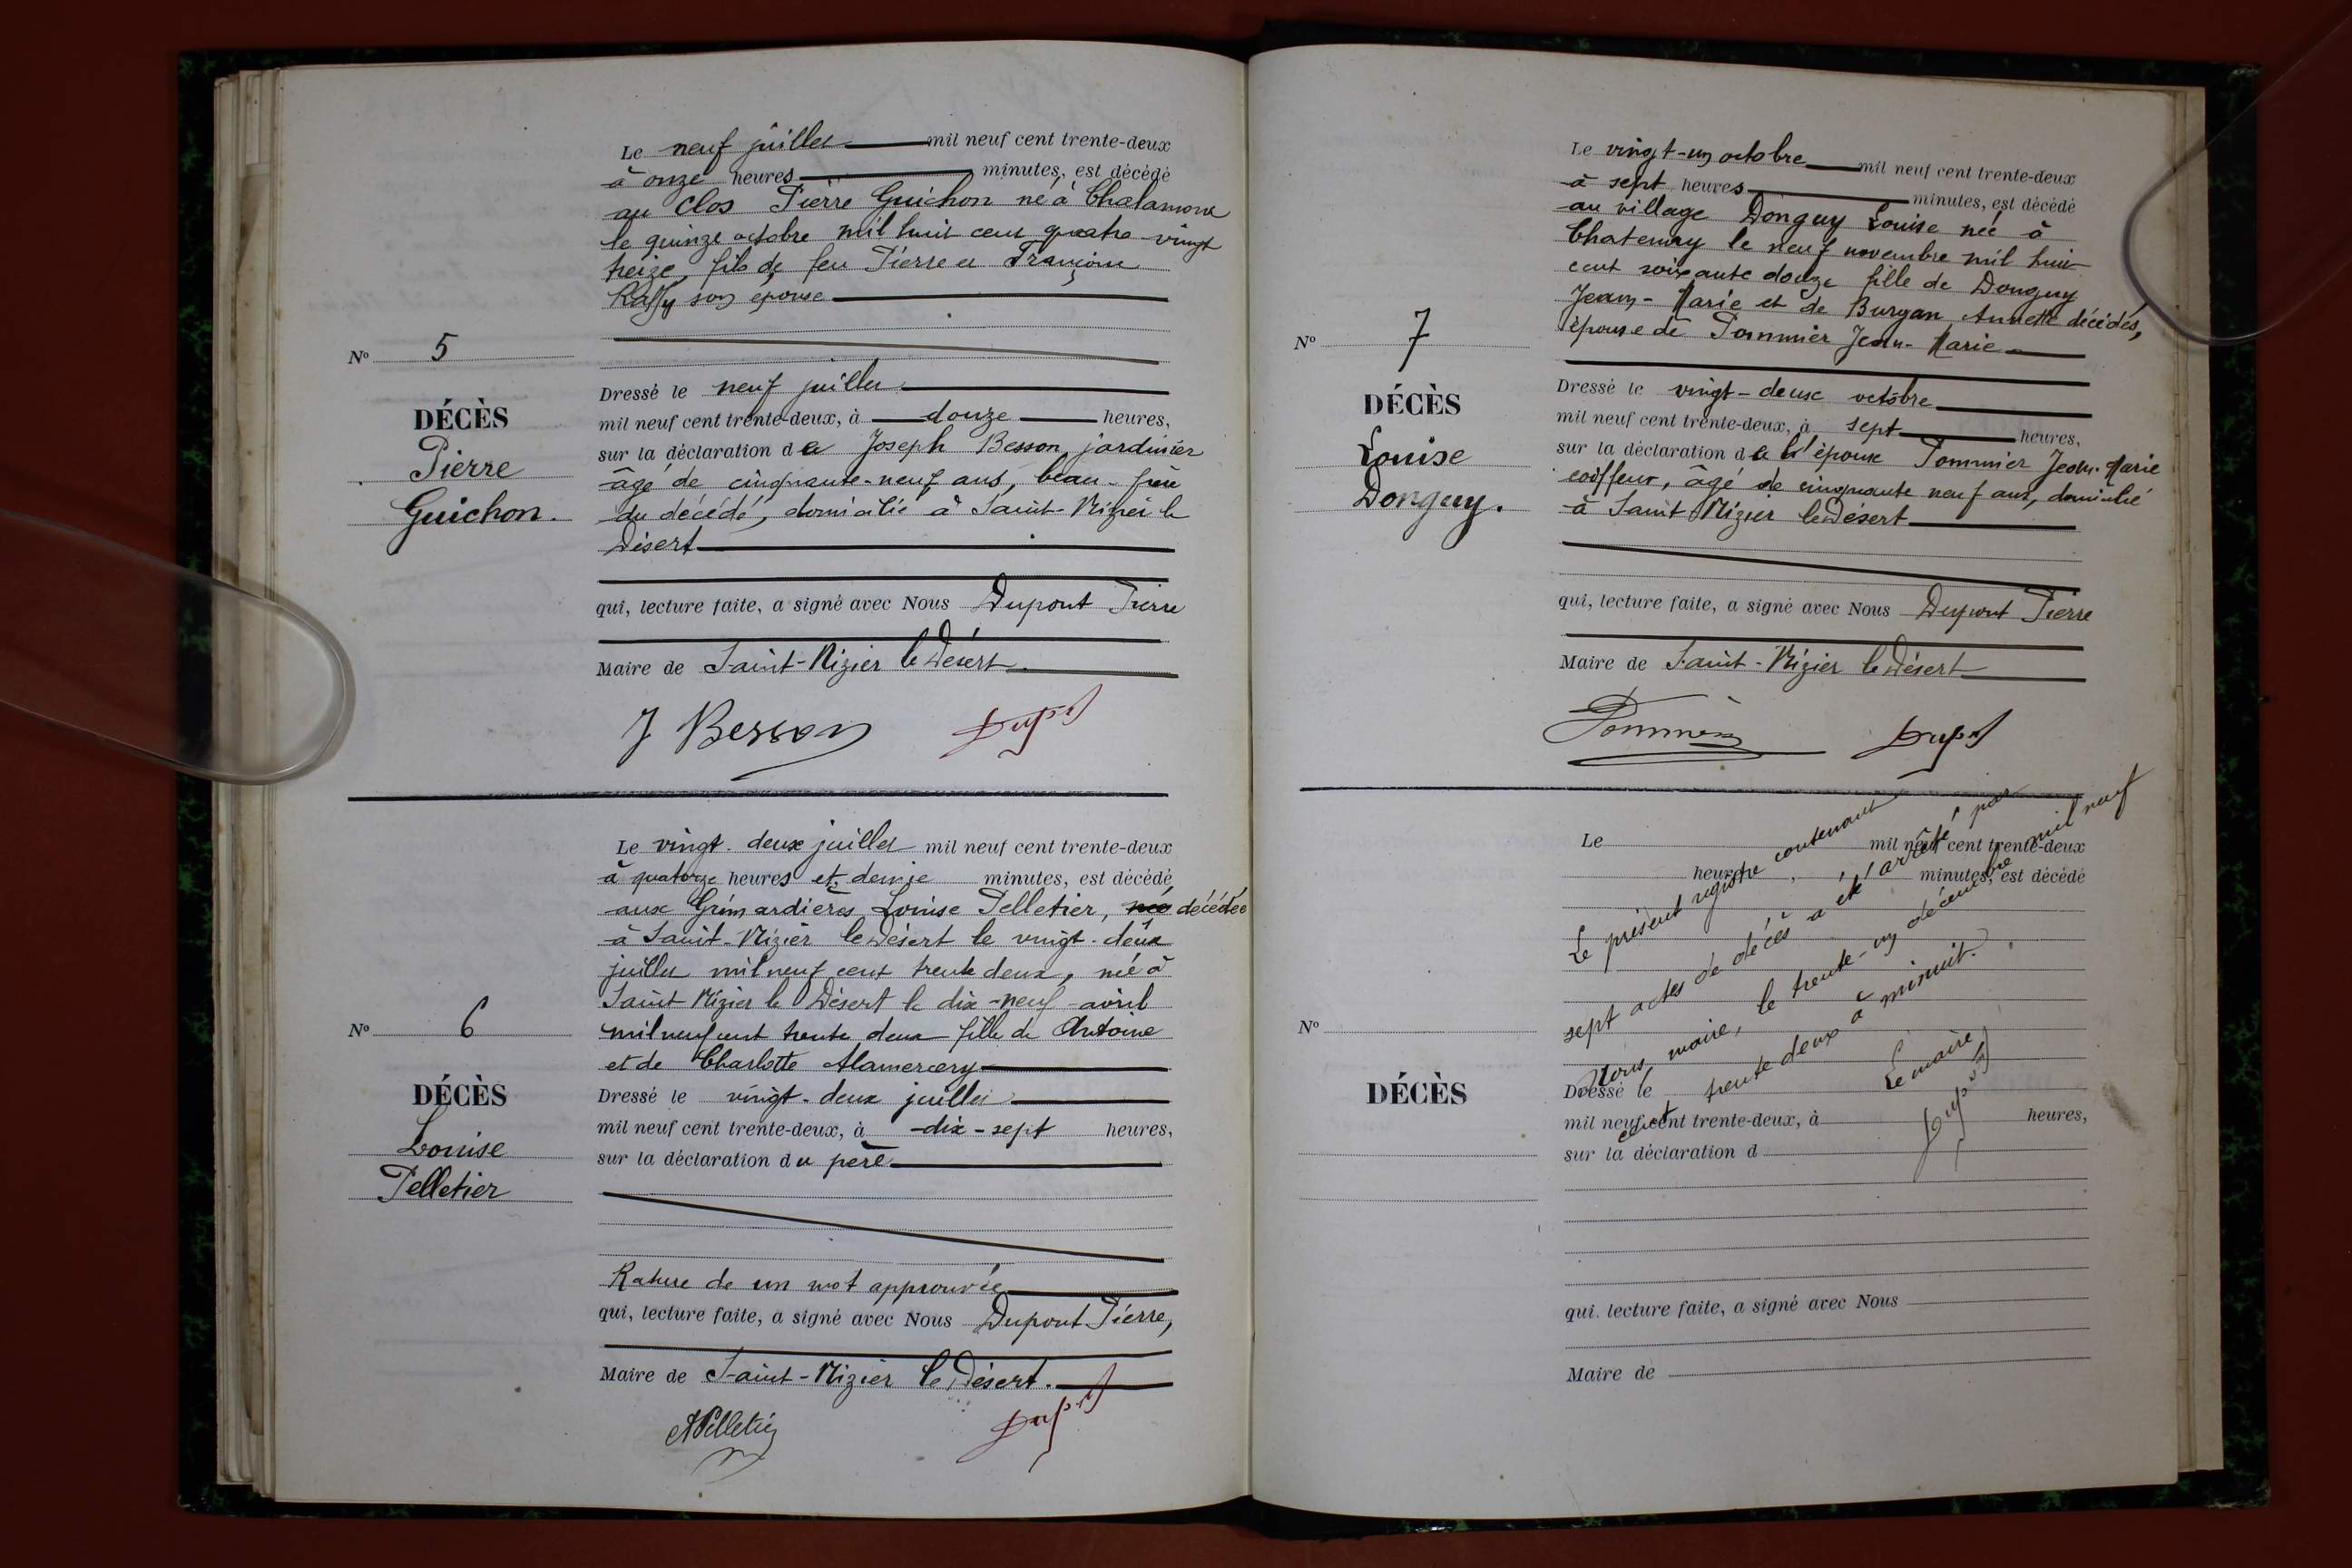 Le neuf juillet mil neuf cent trente-deux
à onze heures minutes, est décédé
au Clos Pierre Guichon né à Chalamont
le quinze octobre mil huit cent quatre-vingt
treize, fils de feu Pierre et Françoise
son épouse
N° 5
DÉCÈS
Pierre
Guichon.
Dressé le neuf juillet
mil neuf cent trente-deux, à douze heures,
sur la déclaration de Joseph Besson jardinier
âgé de cinquante-neuf ans, beau-frère
du décédé, domicilié à Saint-Nizier le
Désert
qui, lecture faite, a signé avec Nous Dupont Pierre
Maire de Saint-Nizier le Désert.
J Besson Dupont
Le vingt-deux juillet mil neuf cent trente-deux
à quatorze heures et demie minutes, est décédé
aux Grimardières Louise Pelletier, née décédée
à Saint-Nizier le Désert le vingt-deux
juillet mil neuf cent trente deux, née à
Saint Nizier le Désert le dix-neuf avril
mil neuf cent trente deux fille de Antoine
et de Charlotte Alamercery
N° 6
DÉCÈS
Louise
Pelletier
Dressé le vingt-deux juillet
mil neuf cent trente-deux, à dix-sept heures,
sur la déclaration du père
Rature de un mot approuvée
qui, lecture faite, a signé avec Nous Dupont Pierre,
Maire de Saint-Nizier le Désert.
APelletier Dupont
Le vingt-un octobre mil neuf cent trente-deux
à sept heures minutes, est décédé
au village Donguy Louise née à
Chatenay le neuf novembre mil huit
cent soixante douze fille de Donguy
Jean-Marie et de Burgan Annette décédés,
épouse de Pommier Jean-Marie
N° 7
DÉCÈS
Louise
Donguy.
Dressé le vingt-deux octobre
mil neuf cent trente-deux, à sept heures,
sur la déclaration de l'époux Pommier Jean-Marie
coiffeur, âgé de cinquante neuf ans, domicilié
à Saint Nizier le Désert
qui, lecture faite, a signé avec Nous Dupont Pierre
Maire de Saint-Nizier le Désert
Pommier Dupont
Le mil neuf cent trente-deux
heures minutes, est décédé
Le présent registre contenant
sept actes de décès a été arrêté par
Nous maire, le trente-un décembre mil neuf
cent trente deux à minuit.
Le maire
Dupont
N°
DÉCÈS
Dressé le
mil neuf cent trente-deux, à heures,
sur la déclaration d
qui, lecture faite, a signé avec Nous
Maire de